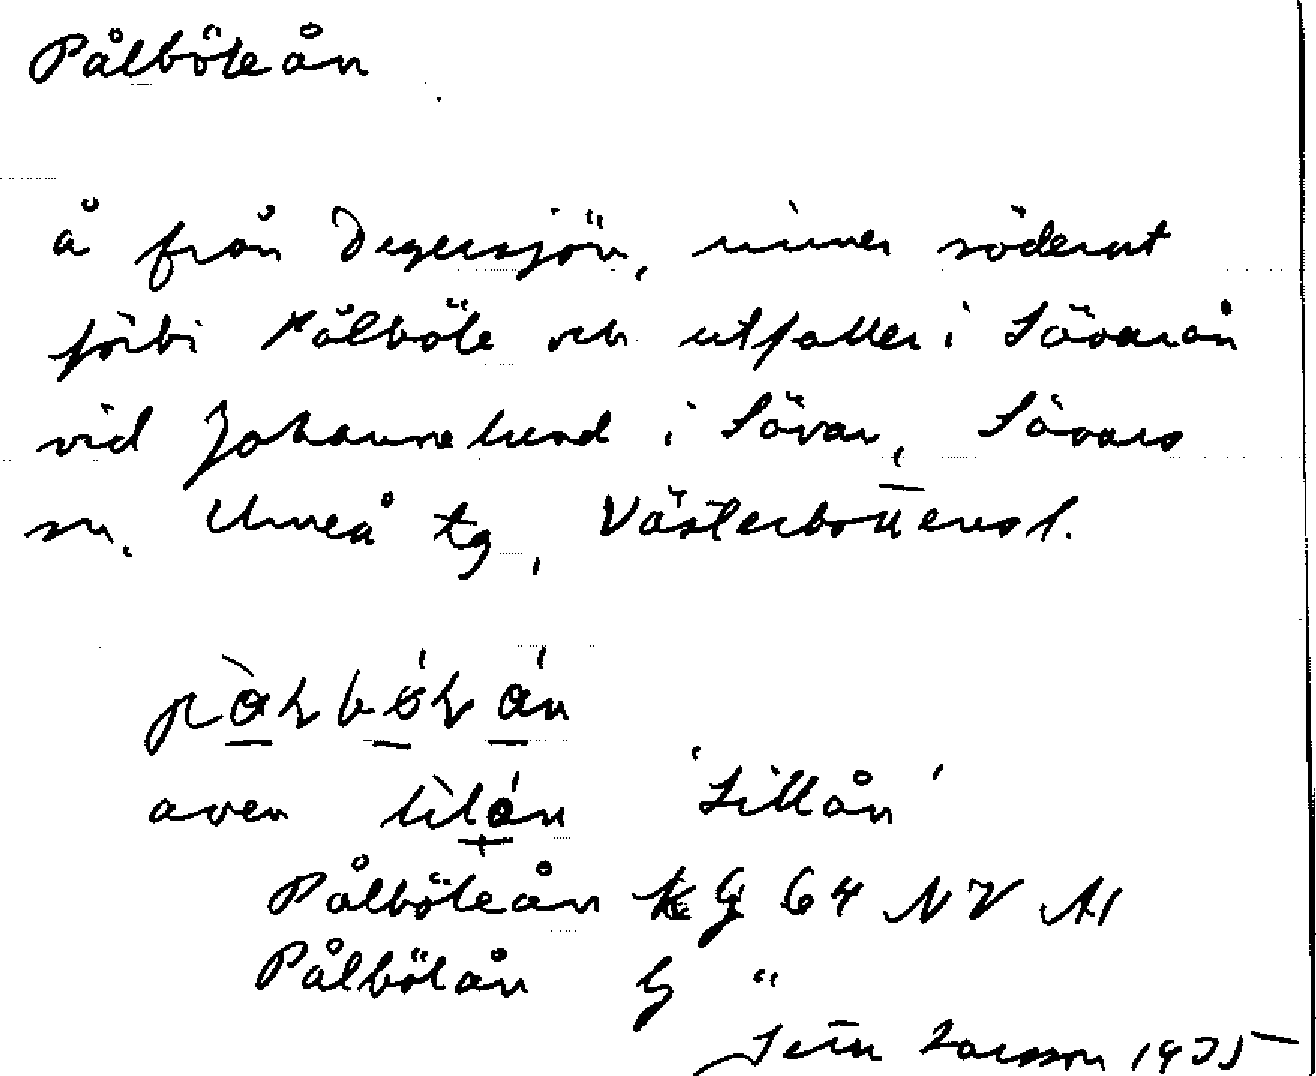 Pålböleån
å från Degersjön, rinner söderut
förbi Pålböle och utfaller i Sävarån
vid Johannelund i Sävar, Sävars
sn. Umeå tg, Västerbottens l.
även 'Lillån'
Pålböleån KG 64 NV
Pålbölån G "
Larsson 1935